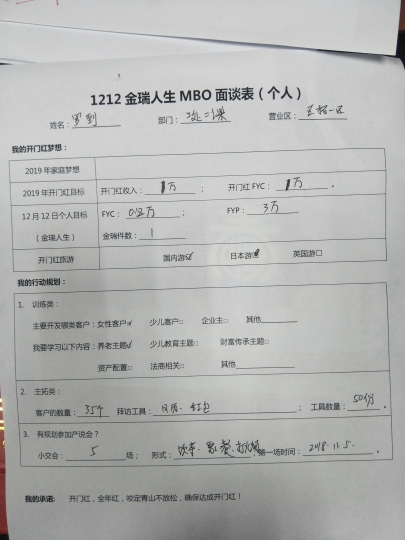 1212 金瑞人生 MBO 面谈表（个人）
姓名： 部门： 营业区：
我的开门红梦想：
2019 年家庭梦想
2019 年开门红目标 开门红收入： 1万 ； 开门红 FYC： 1万 。
12 月 12 日个人目标 FYC： 0.8万 ； FYP： 3万
（金瑞人生） 金瑞件数： 1
开门红旅游 国内游☑ 日本游☑ 英国游□
我的行动规划：
1. 训练类：
主要开发哪类客户：女性客户☑ 少儿客户□ 企业主□ 其他
我要学习以下内容：养老主题☑ 少儿教育主题□ 财富传承主题□
资产配置□ 法商相关□ 其他
2. 主拓类：
客户的数量： 35个 拜访工具： 日历、红包 ； 工具数量： 50份 。
3. 有规划参加产说会？
小交会： 5 场； 形式： 聚餐 ，第一场时间： 2018.11.5.
我的承诺： 开门红，全年红，咬定青山不放松，确保达成开门红！